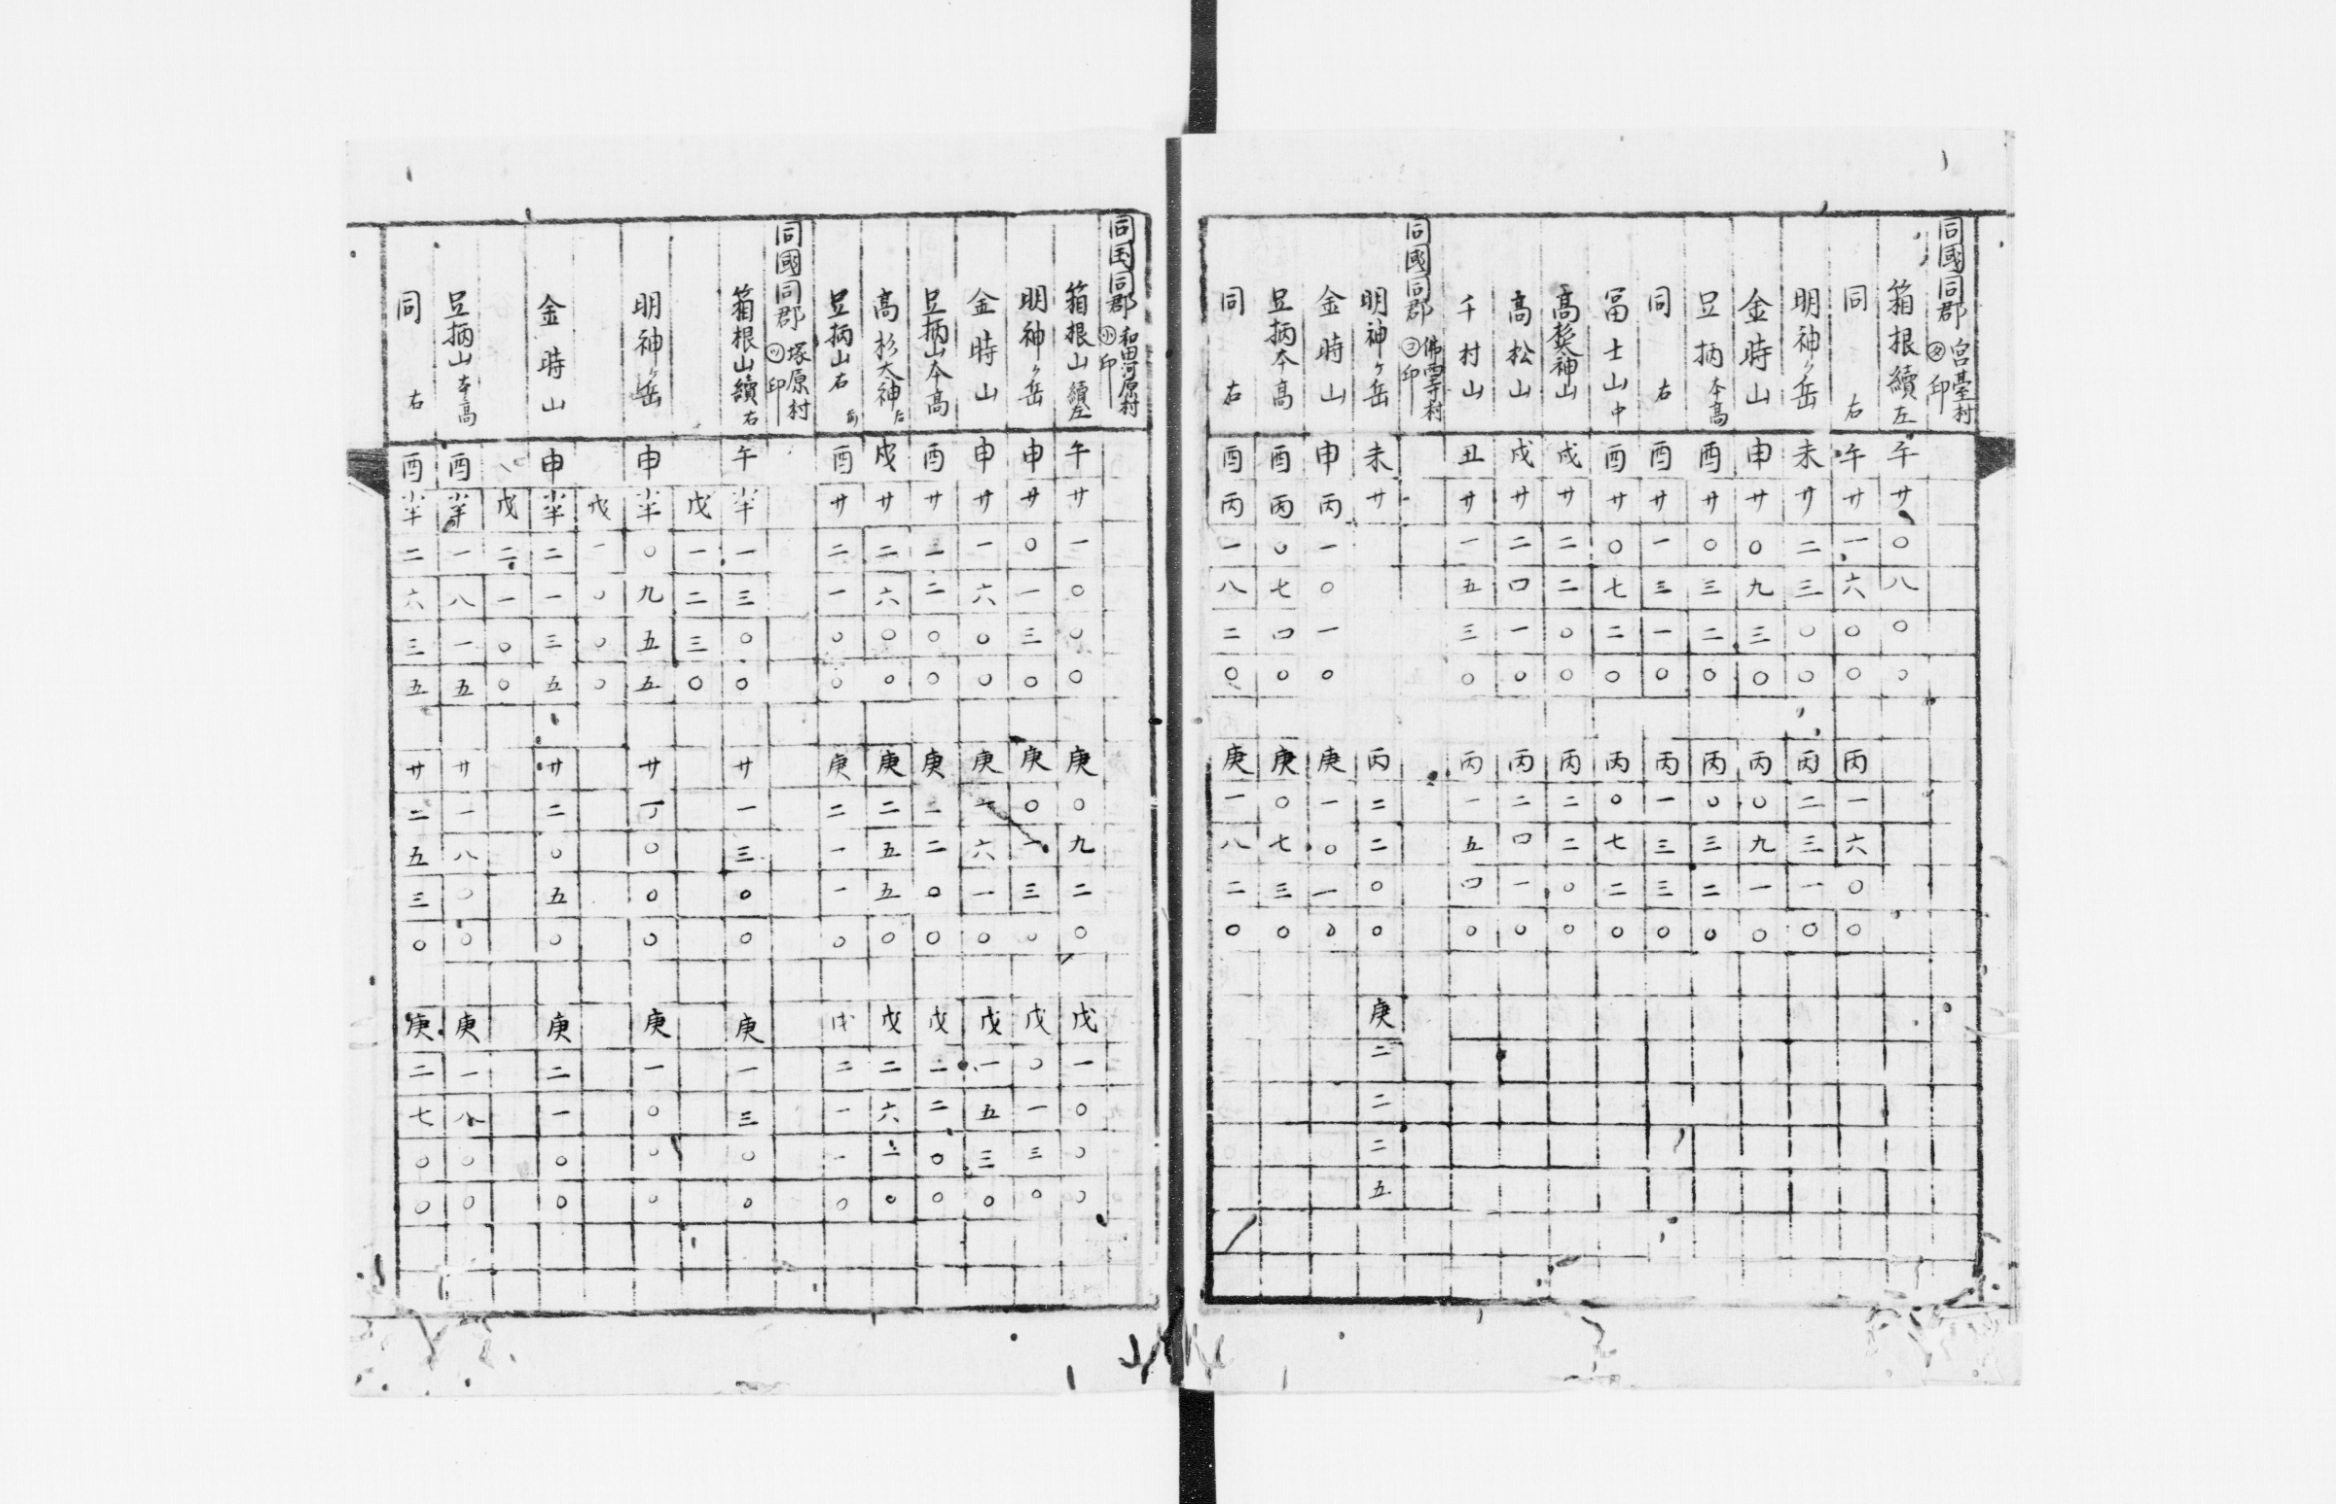 同國同郡 宮臺村 ㋟印
箱根續左 午 廾 〇 八 〇 〇
同 右 午 廾 一 六 〇 〇 丙 一 六 〇 〇
明神ヶ岳 未 廾 二 三 〇 〇 丙 二 三 一 〇
金時山 申 廾 〇 九 三 〇 丙 〇 九 一 〇
足柄本高 酉 廾 〇 三 二 〇 丙 〇 三 二 〇
同 右 酉 廾 一 三 一 〇 丙 一 三 三 〇
冨士山中 酉 廾 〇 七 二 〇 丙 〇 七 二 〇
戌 廾 二 二 〇 〇 丙 二 二 〇 〇
高松山 戌 廾 二 四 一 〇 丙 二 四 一 〇
千村山 丑 廾 一 五 三 〇 丙 一 五 四 〇
同國同郡 佛西寺村 ㋵印
明神ヶ岳 未 廾 丙 二 二 〇 〇 庚 二 二 二 五
金時山 申 丙 一 〇 一 〇 庚 一 〇 一 〇
足柄本高 酉 丙 〇 七 四 〇 庚 〇 七 三 〇
同 右 酉 丙 一 八 二 〇 庚 一 八 二 〇
同国同郡 和田河原村 印
箱根山續左 午 廾 一 〇 〇 〇 庚 〇 九 二 〇 戊 一 〇 〇 〇
明神ヶ岳 申 廾 〇 一 三 〇 庚 〇 一 三 〇 戊 〇 一 三 〇
金時山 申 廾 一 六 〇 〇 庚 一 六 一 〇 戊 一 五 三 〇
足柄山本高 酉 廾 二 二 〇 〇 庚 二 二 〇 〇 戊 二 二 〇 〇
高杉大神 戌 廾 二 六 〇 〇 庚 二 五 五 〇 戊 二 六 二 〇
足柄山右 酉 廾 二 一 〇 〇 庚 二 一 一 〇 戊 二 一 一 〇
同國同郡 塚原村 ㋡印
箱根山續右 午 半 一 三 〇 〇 廾 一 三 〇 〇 庚 一 三 〇 〇
戊 一 二 三 〇
明神ヶ岳 申 半 〇 九 五 五 廾 丁 〇 〇 〇 庚 一 〇 〇 〇
戊 一 〇 〇 〇
金時山 申 半 二 一 三 五 廾 二 〇 五 〇 庚 二 一 〇 〇
戊 二 一 〇 〇
足柄山本高 酉 半 一 八 一 五 廾 一 八 〇 〇 庚 一 八 〇 〇
同 右 酉 半 二 六 三 五 廾 二 五 三 〇 庚 二 七 〇 〇